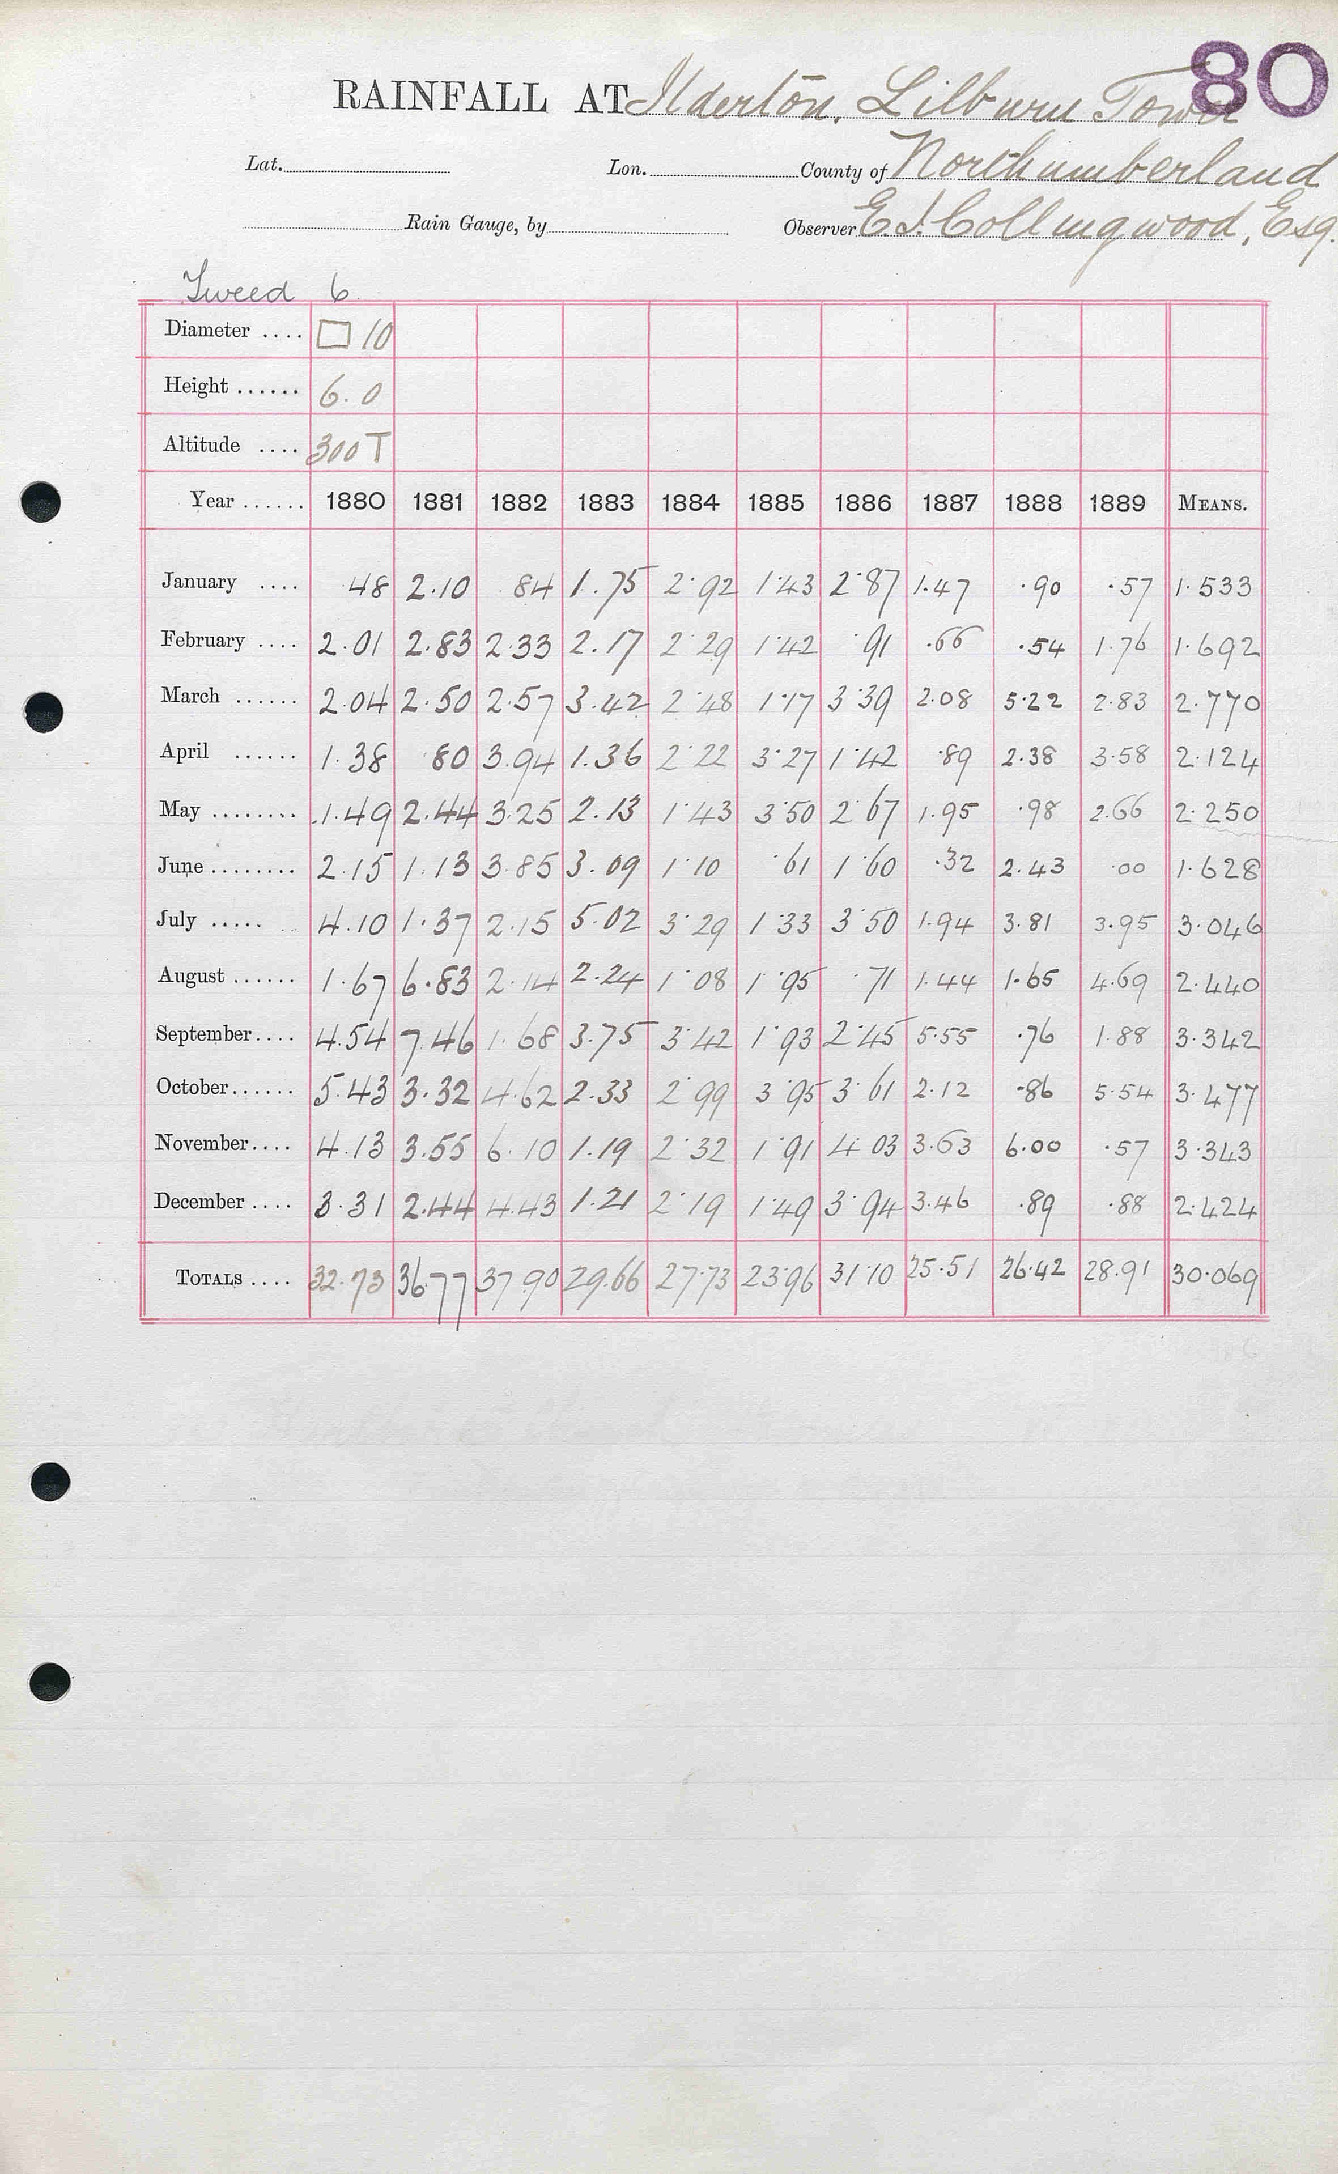 80
RAINFALL AT Ilderton, Lilburn Tower
Lat. Lon. County of Northumberland
Rain Gauge, by Observer E.J. Collingwood, Esq.
Tweed 6
Diameter .... □ 10
Height ...... 6.0
Altitude .... 300 T
Year ...... 1880 1881 1882 1883 1884 1885 1886 1887 1888 1889 MEANS.
January .... .48 2.10 .84 1.75 2.92 1.43 2.87 1.47 .90 .57 1.533
February .... 2.01 2.83 2.33 2.17 2.29 1.42 .91 .66 .54 1.76 1.692
March ...... 2.04 2.50 2.57 3.42 2.48 1.17 3.39 2.08 5.22 2.83 2.770
April ...... 1.38 .80 3.94 1.36 2.22 3.27 1.42 .89 2.38 3.58 2.124
May ........ 1.49 2.44 3.25 2.13 1.43 3.50 2.67 1.95 .98 2.66 2.250
June ........ 2.15 1.13 3.85 3.09 1.10 .61 1.60 .32 2.43 .00 1.628
July ..... 4.10 1.37 2.15 5.02 3.29 1.33 3.50 1.94 3.81 3.95 3.046
August ...... 1.67 6.83 2.14 2.24 1.08 1.95 .71 1.44 1.65 4.69 2.440
September .... 4.54 7.46 1.68 3.75 3.42 1.93 2.45 5.55 .76 1.88 3.342
October ...... 5.43 3.32 4.62 2.33 2.99 3.95 3.61 2.12 .86 5.54 3.477
November .... 4.13 3.55 6.10 1.19 2.32 1.91 4.03 3.63 6.00 .57 3.343
December .... 3.31 2.44 4.43 1.21 2.19 1.49 3.94 3.46 .89 .88 2.424
TOTALS .... 32.73 36.77 37.90 29.66 27.73 23.96 31.10 25.51 26.42 28.91 30.069